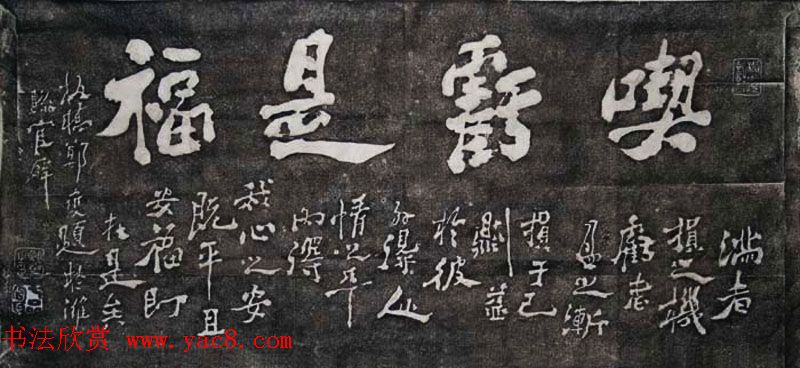 喫虧是福
滿者
損之機
虧者
盈之漸
損于己
則益
於彼
外得人
情之平
內得
我心之安
既平且
安福即
在是矣
板橋鄭燮題於濰
縣官署
书法欣赏 www.yac8.com